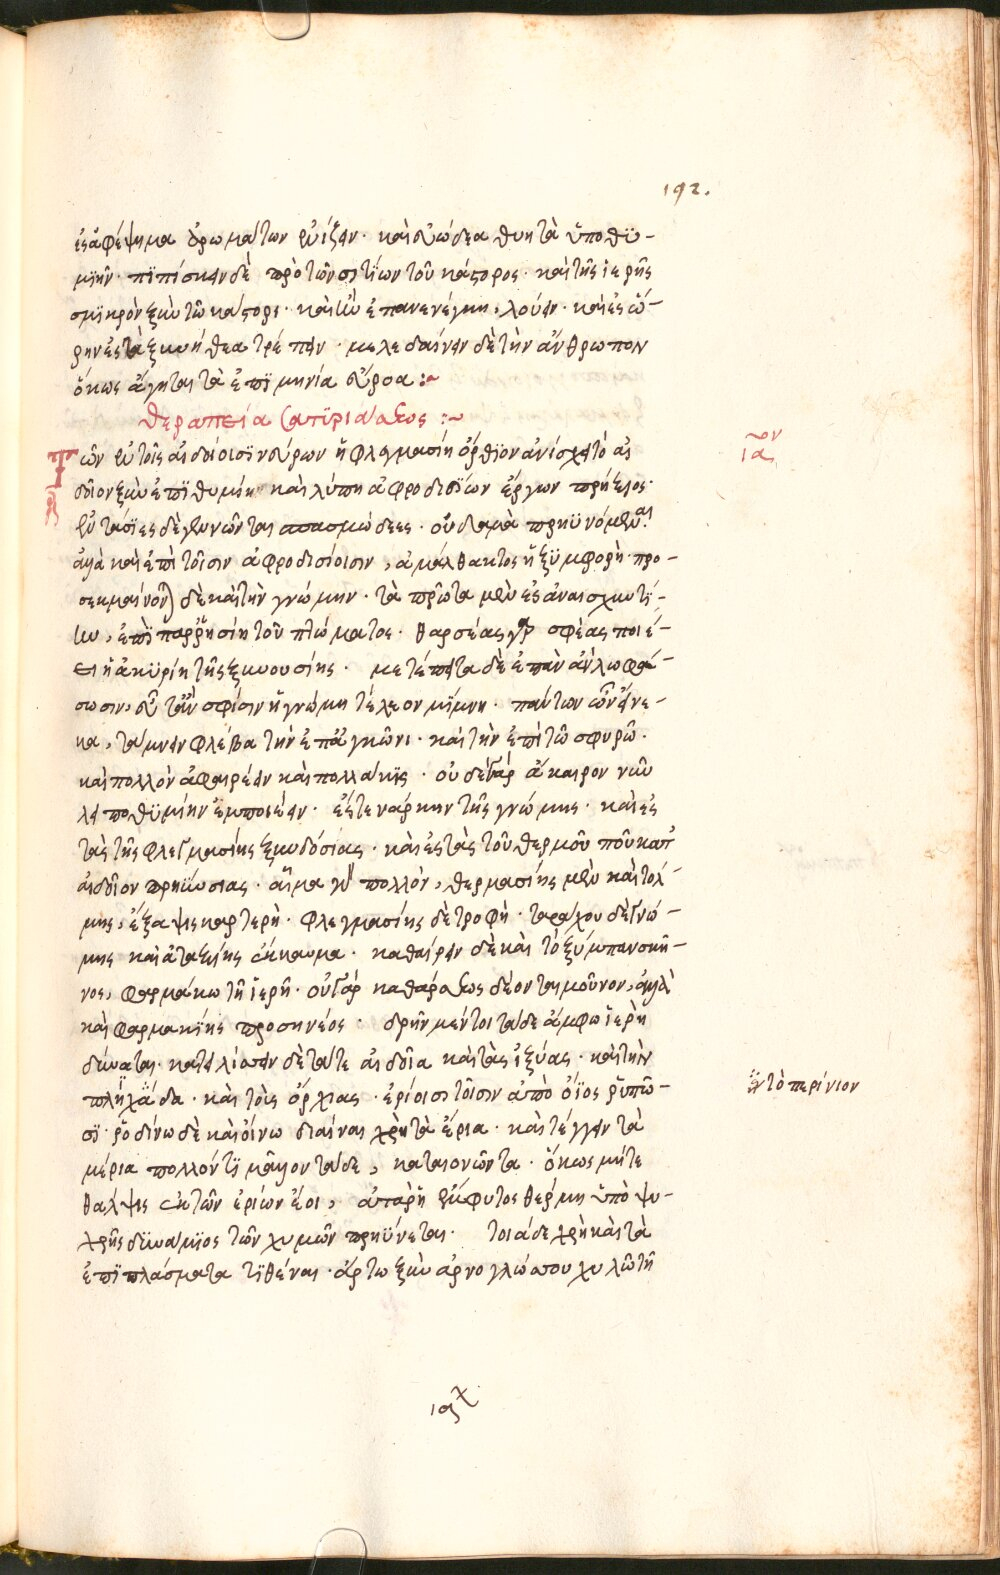 192.
ἐς ἀφέψημα ἀρωμάτων ἐνίζειν· καὶ εὐώδεα θυητὰ ὑποθυ-
μιῆν· πιπίσκειν δὲ πρὸ τῶν σιτίων τοῦ κάστορος· καὶ τῆς ἱερῆς
σμικρὸν ξὺν τῶ κάστορι· καὶ ἢν ἐπανενέγκη, λούειν· καὶ ἐς ὥ-
ρην ἐς τὰ ξυνήθεα τρέπειν· μελεδαίνειν δὲ τὴν ἄνθρωπον
ὅκως ἄγηται τὰ ἐπιμήνια εὔροα :~
θεραπεία σατυριάσεως :~
Τῶν ἐν τοῖς αἰδοίοισι νεύρων ἡ φλεγμασίη ὄρθιον ἀνίσχει τὸ αἰ
δοῖον ξὺν ἐπιθυμίη καὶ λύπη ἀφροδισίων ἔργων πρήξιος·
ἐντάσιες δὲ γινῶνται σπασμώδεες· οὐδαμὰ πρηϋνόμεναι
ἀλλὰ καὶ ἐπὶ τοῖσιν ἀφροδισίοισιν, ἀμάλθακτος ἡ ξυμφορὴ· προ-
σεκμαίνονται δὲ καὶ τὴν γνώμην· τὰ πρῶτα μὲν ἐς ἀναισχυντί-
ην, ἐπὶ παρρησίη τοῦ πτώματος· θαρσέας γὰρ σφέας ποιέ-
ει ἡ ἀκυρίη τῆς ξυνουσίης· μετέπειτα δὲ ἐπὰν ἀνλωφά-
σωσιν, εὖ τἂν σφίσιν ἡ γνώμη τέλεον μίμνη· πάντων ὦν εἵνε-
κα, τάμνειν φλέβα τὴν ἐπ' ἀγκῶνι· καὶ τὴν ἐπὶ τῶ σφυρῶ·
καὶ πολλὸν ἀφαιρέειν καὶ πολλάκις· οὐδὲ γὰρ ἄκαιρον νῦν
λειποθυμίην ἐμποιέειν· ἔς τε νάρκην τῆς γνώμης· καὶ ἐς
τὰς τῆς φλεγμασίης ξυνδόσιας· καὶ ἐς τὰς τοῦ θερμοῦ τοῦ κατ'
αἰδοῖον πρηΰσιας· αἷμα γὰρ πολλόν, θερμασίης μὲν καὶ τόλ-
μης, ἔξαψις καρτερὴ· φλεγμασίης δὲ τροφὴ· ταράχου δὲ γνώ-
μης καὶ ἀταξίης ἔκκαυμα· καθαίρειν δὲ καὶ τὸ ξύμπαν σκῆ-
νος, φαρμάκω τῆ ἱερῆ· οὐ γὰρ καθάρσεως δέονται μοῦνον, ἀλλὰ
καὶ φαρμακίης προσηνέος· δρῆν μέντοι τάδε ἄμφω ἱερὴ
δύναται· κατειλίσσειν δὲ τά τε αἰδοῖα καὶ τὰς ἰξύας· καὶ τὴν
πληχάδα· καὶ τοὺς ὄρχιας· ἐρίοισι τοῖσιν ἀπὸ ὄϊος ῥυπῶ-
σι· ῥοδίνω δὲ καὶ οἴνω διαίνειν χρὴ τὰ ἔρια· καὶ τέγγειν τὰ
μέρια πολλόν τι μᾶλλον τάδε, καταιονῶντα· ὅκως μήτε
θάλψις ἐκ τῶν ἐρίων ἔοι, ἀτὰρ ἡ ἔμφυτος θέρμη ὑπὸ ψυ-
χρῆς δυνάμιος τῶν χυμῶν πρηΰνεται· τοιάδε χρὴ καὶ τὰ
ἐπιπλάσματα τιθέναι· ἄρτω ξὺν ἀρνογλώσσου χυλῶ τῆ
ἤτοι τὸ περίνιον